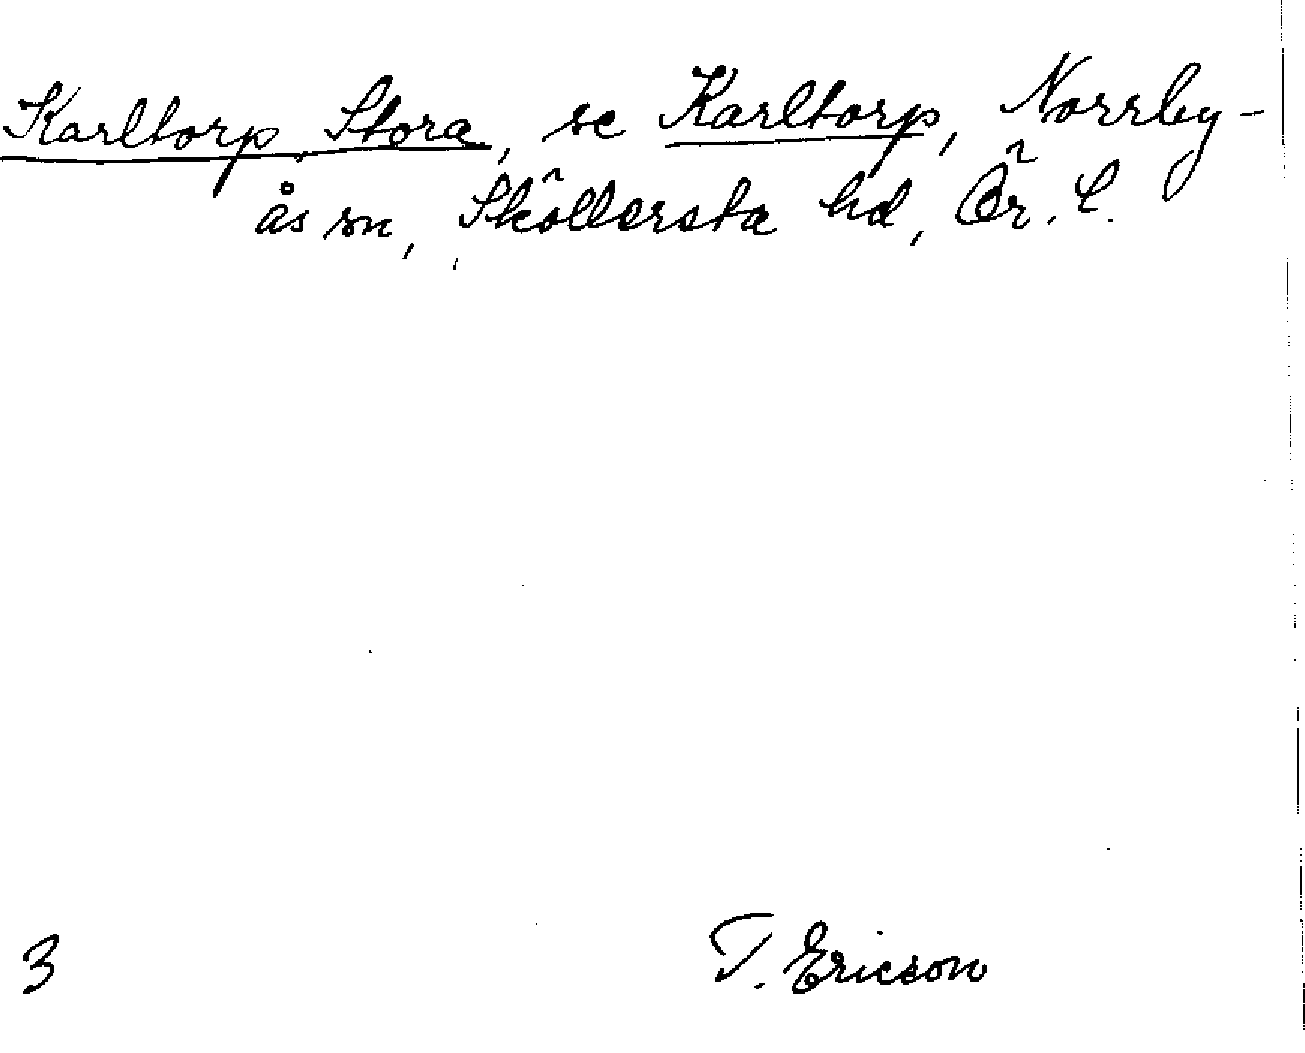 Karltorp, Stora, se Karltorp, Norrby-
ås sn, Sköllersta hd, Ör. l.
3
T. Ericson